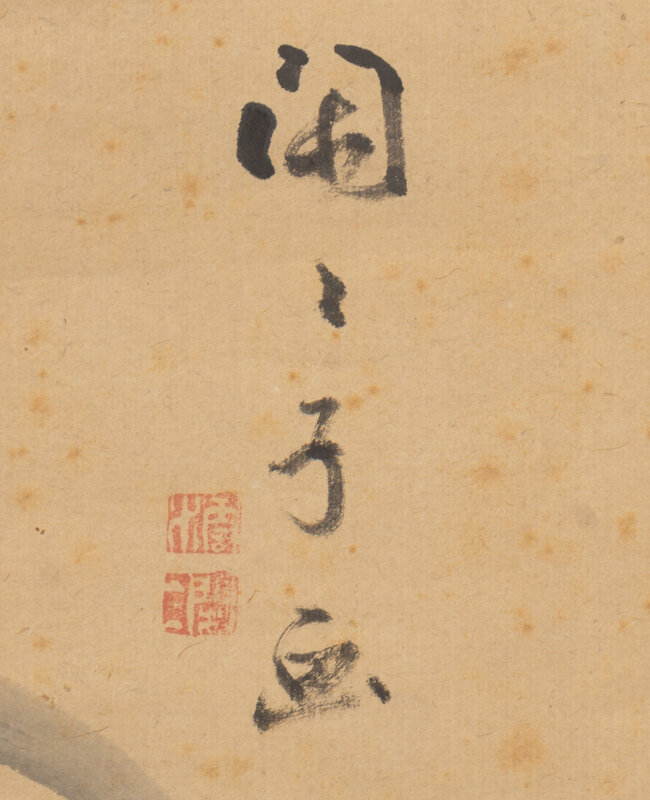 閑々子画